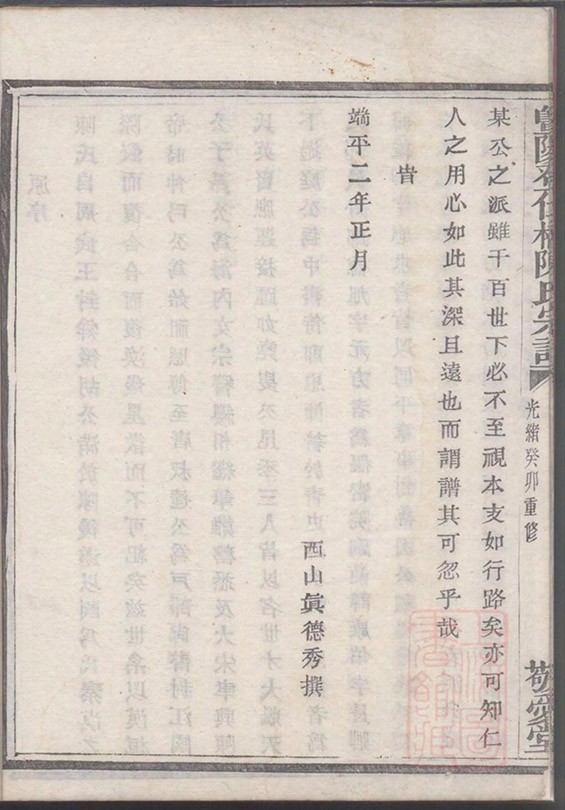 陳氏宗譜
光緒癸卯重修
敬愛堂
某公之派雖千百世下必不至視本支如行路矣亦可知仁
人之用心如此其深且遠也而謂譜其可忽乎哉
旹
端平二年正月
西山眞德秀撰